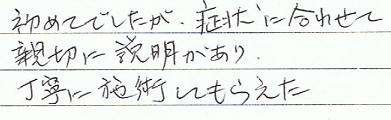 初めてでしたが、症状に合わせて
親切に説明があり、
丁寧に施術してもらえた